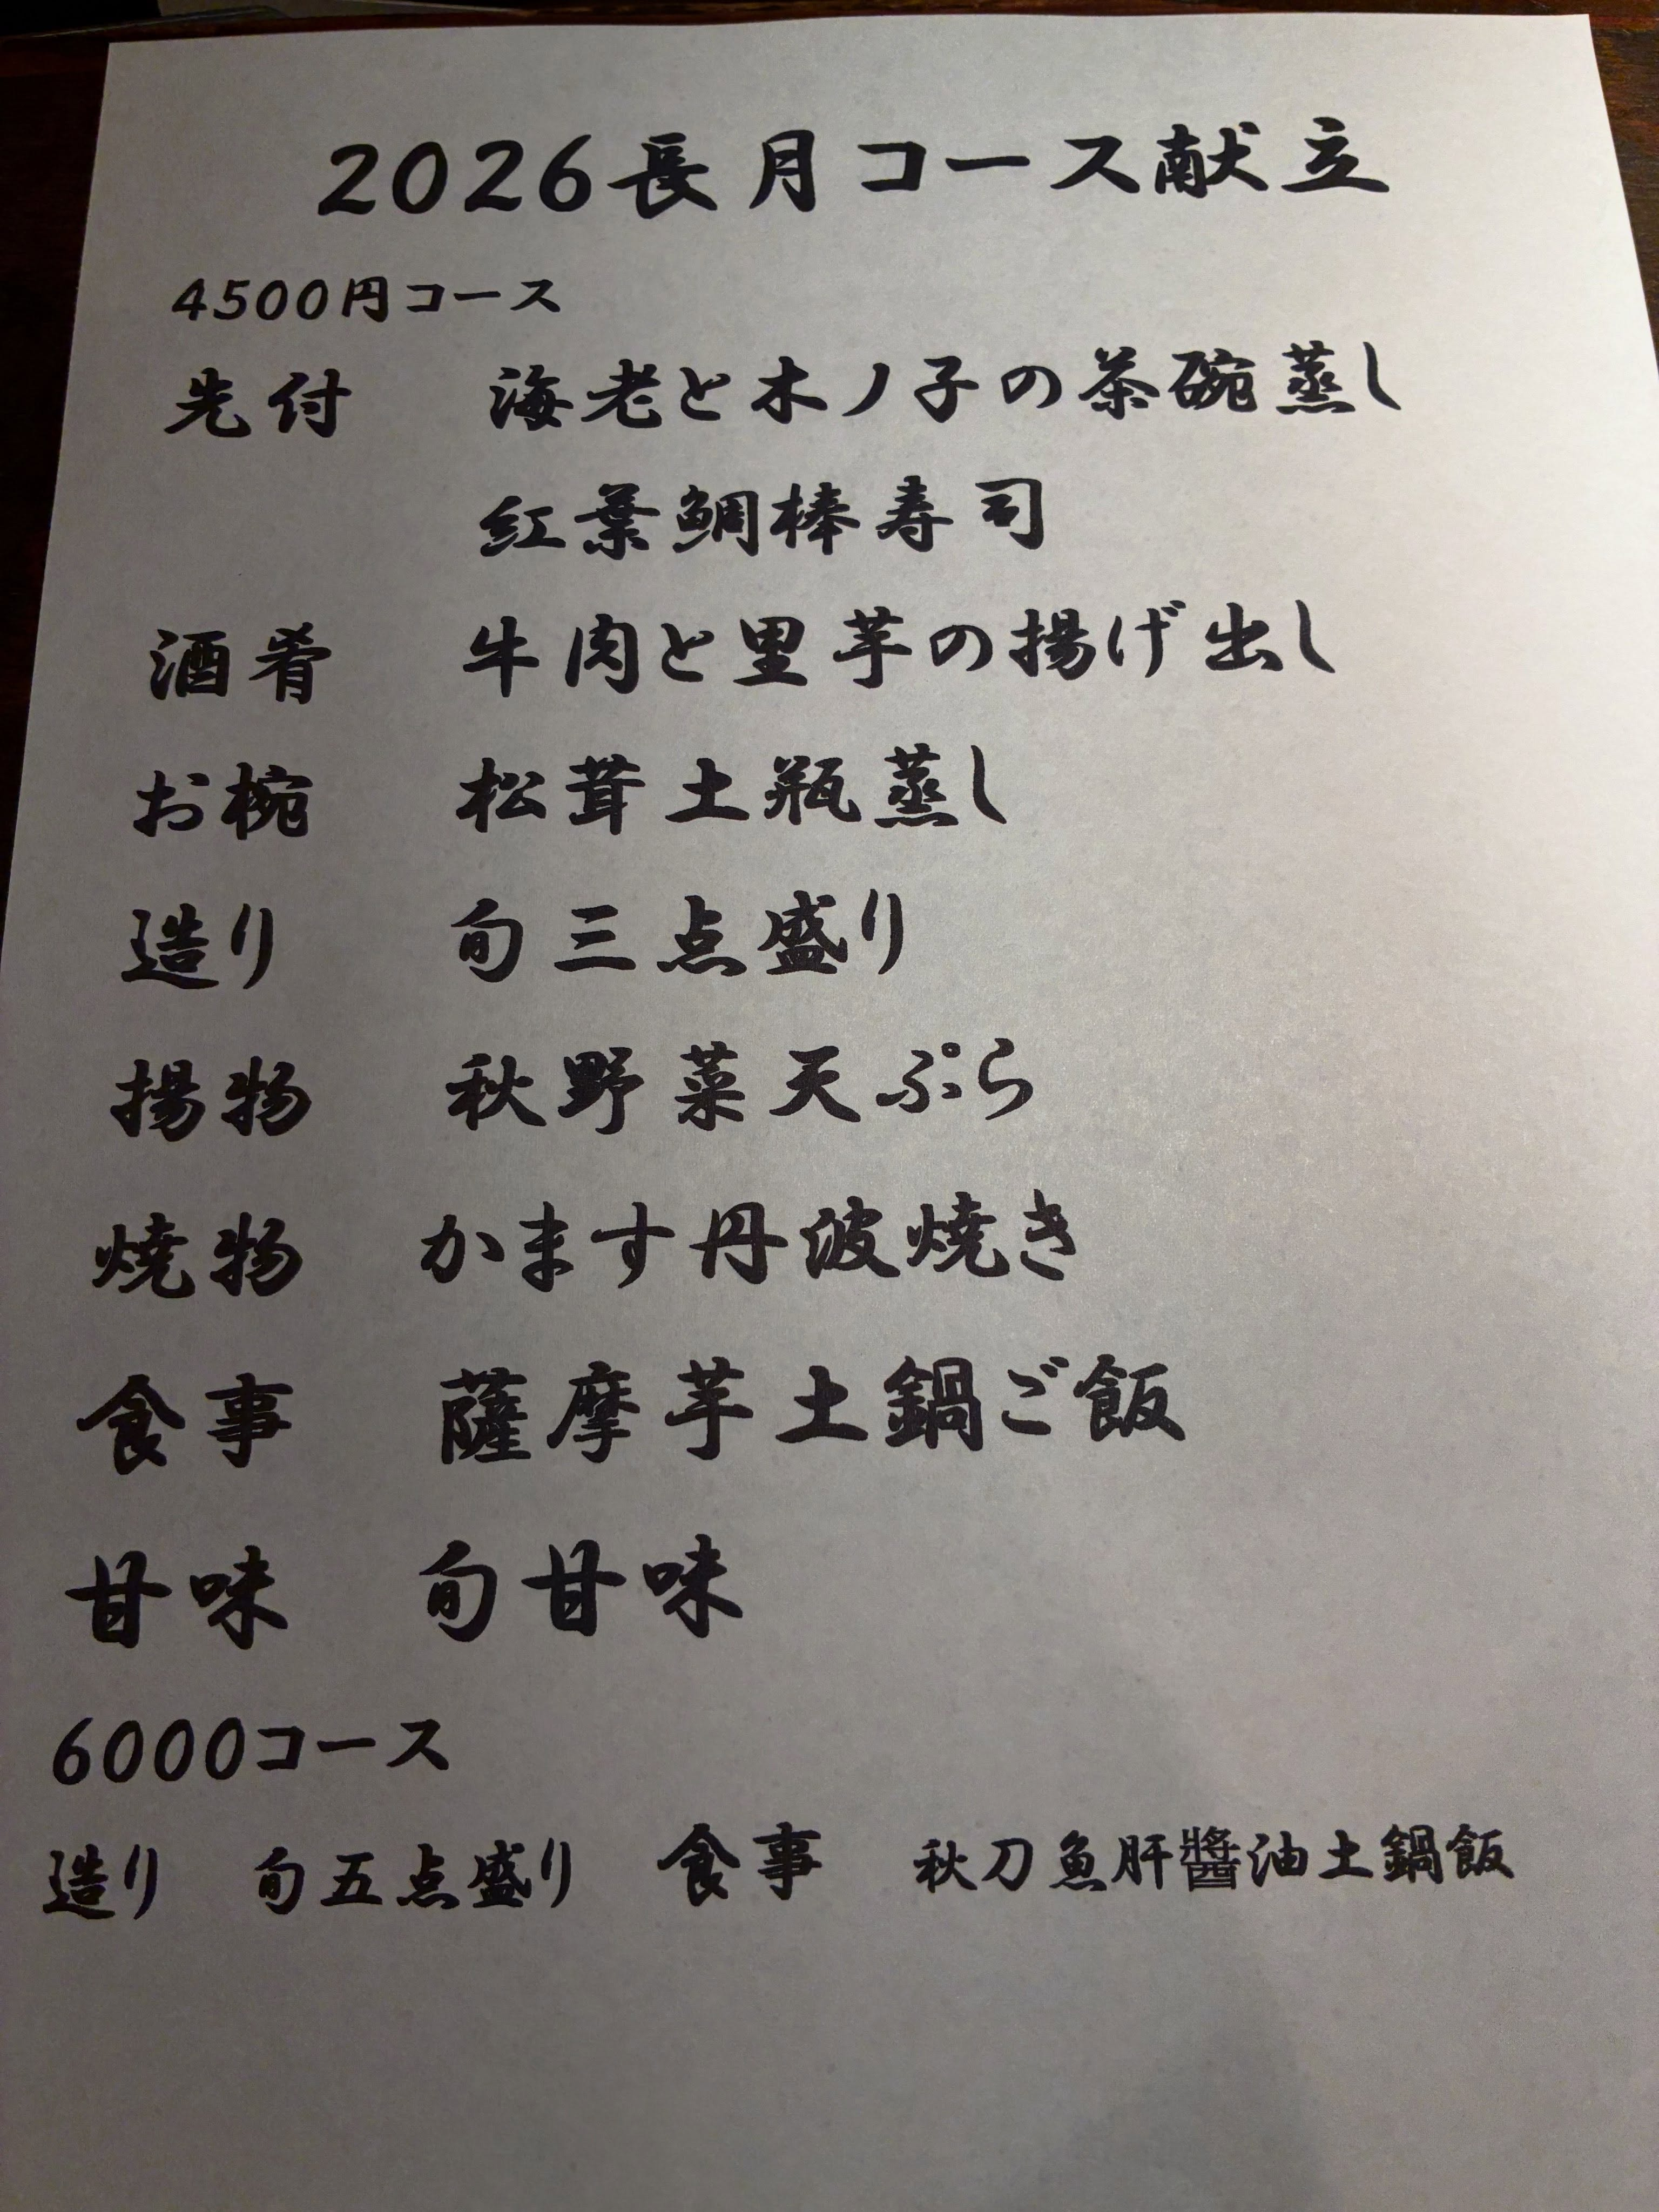 2026長月コース献立
4500円コース
先付 海老と木ノ子の茶碗蒸し
紅葉鯛棒寿司
酒肴 牛肉と里芋の揚げ出し
お椀 松茸土瓶蒸し
造り 旬三点盛り
揚物 秋野菜天ぷら
焼物 かます丹波焼き
食事 薩摩芋土鍋ご飯
甘味 旬甘味
6000コース
造り 旬五点盛り 食事 秋刀魚肝醬油土鍋飯